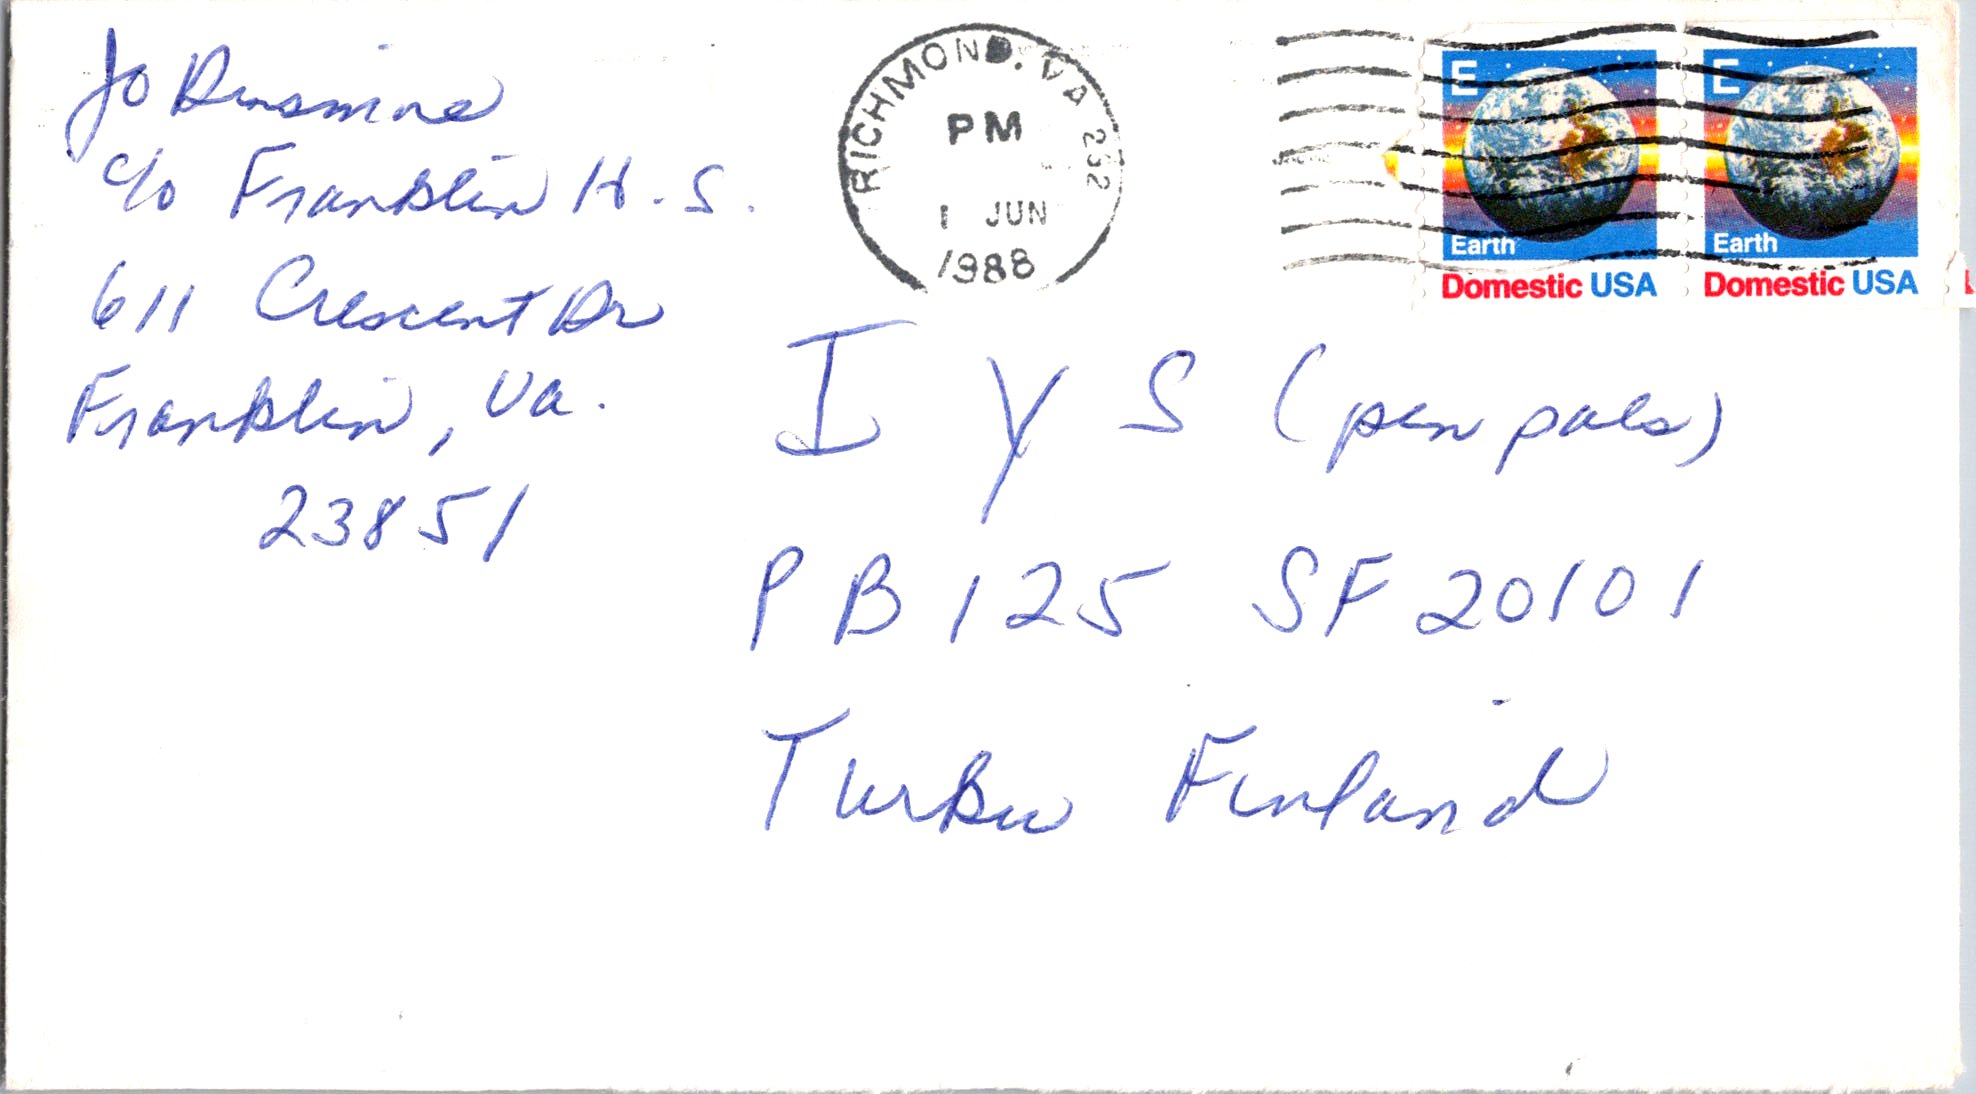 Jo
c/o Franklin H.S.
611 Crescent Dr
Franklin, Va.
23851
RICHMOND, VA 232
PM
1 JUN
1988
E
Earth
Domestic USA
E
Earth
Domestic USA
I Y S (pen pals)
PB 125 SF 20101
Turku Finland